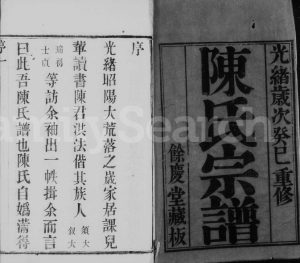 光緒歲次癸巳重修
陳氏宗譜
餘慶堂藏板
序
光緒昭陽大荒落之歲家居課兒
輩讀書陳君洪法偕其族人
等訪余袖出一帙揖余而言
曰此吾陳氏譜也陳氏自媯滿得
序一